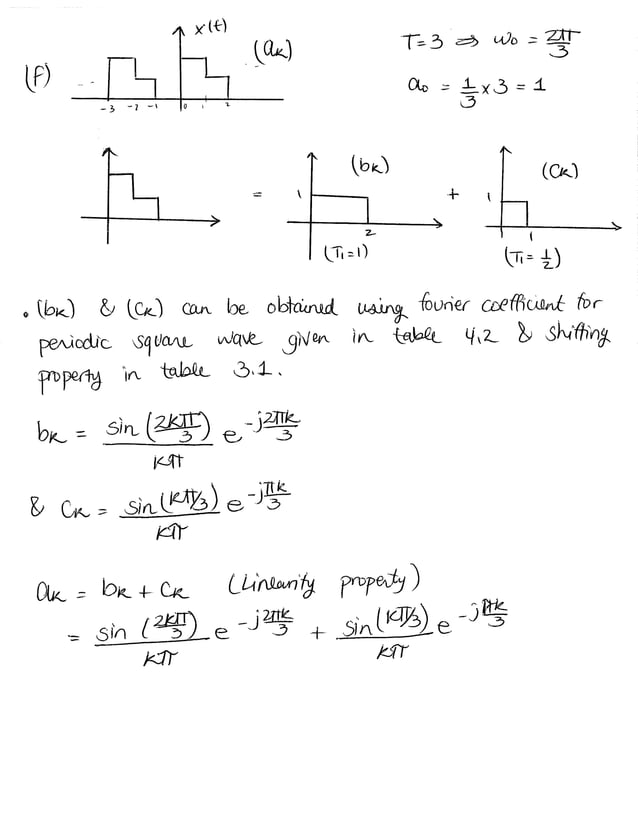 (f)
x(t)
(aₖ)
T=3 ⇒ ω₀ = 2π/3
-3 -2 -1 0 1 2
a₀ = 1/3 x 3 = 1
(bₖ)
(cₖ)
= 1 + 1
2
1
(T₁=1)
(T₁= 1/2)
• (bₖ) & (cₖ) can be obtained using fourier coefficient for
periodic square wave given in table 4.2 & shifting
property in table 3.1.
bₖ = sin (2kπ/3)/kπ e^(-j2πk/3)
& cₖ = sin(kπ/3)/kπ e^(-jπk/3)
aₖ = bₖ + cₖ (Linearity property)
= sin (2kπ/3)/kπ e^(-j2πk/3) + sin(kπ/3)/kπ e^(-jπk/3)